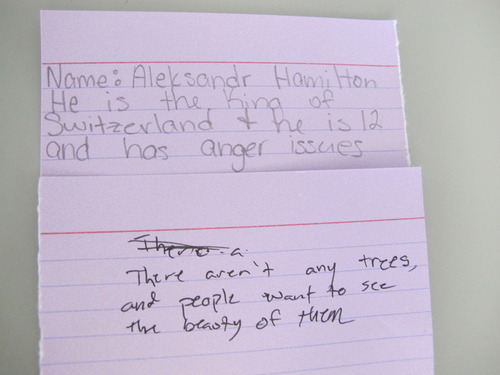 Name: Aleksandr Hamilton
He is the king of
Switzerland & he is 12
and has anger issues
There a.
There aren't any trees,
and people want to see
the beauty of them